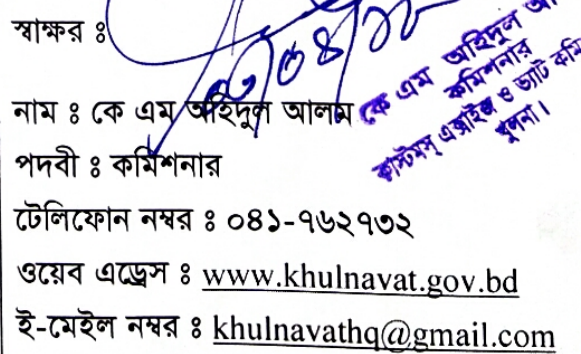 স্বাক্ষর ঃ
নাম ঃ কে এম অহিদুল আলম
পদবী ঃ কমিশনার
টেলিফোন নম্বর ঃ ০৪১-৭৬২৭৩২
ওয়েব এড্রেস ঃ www.khulnavat.gov.bd
ই-মেইল নম্বর ঃ khulnavathq@gmail.com
কে এম অহিদুল
কমিশনার
কাস্টমস্ এক্সাইজ ও ভ্যাট
খুলনা।